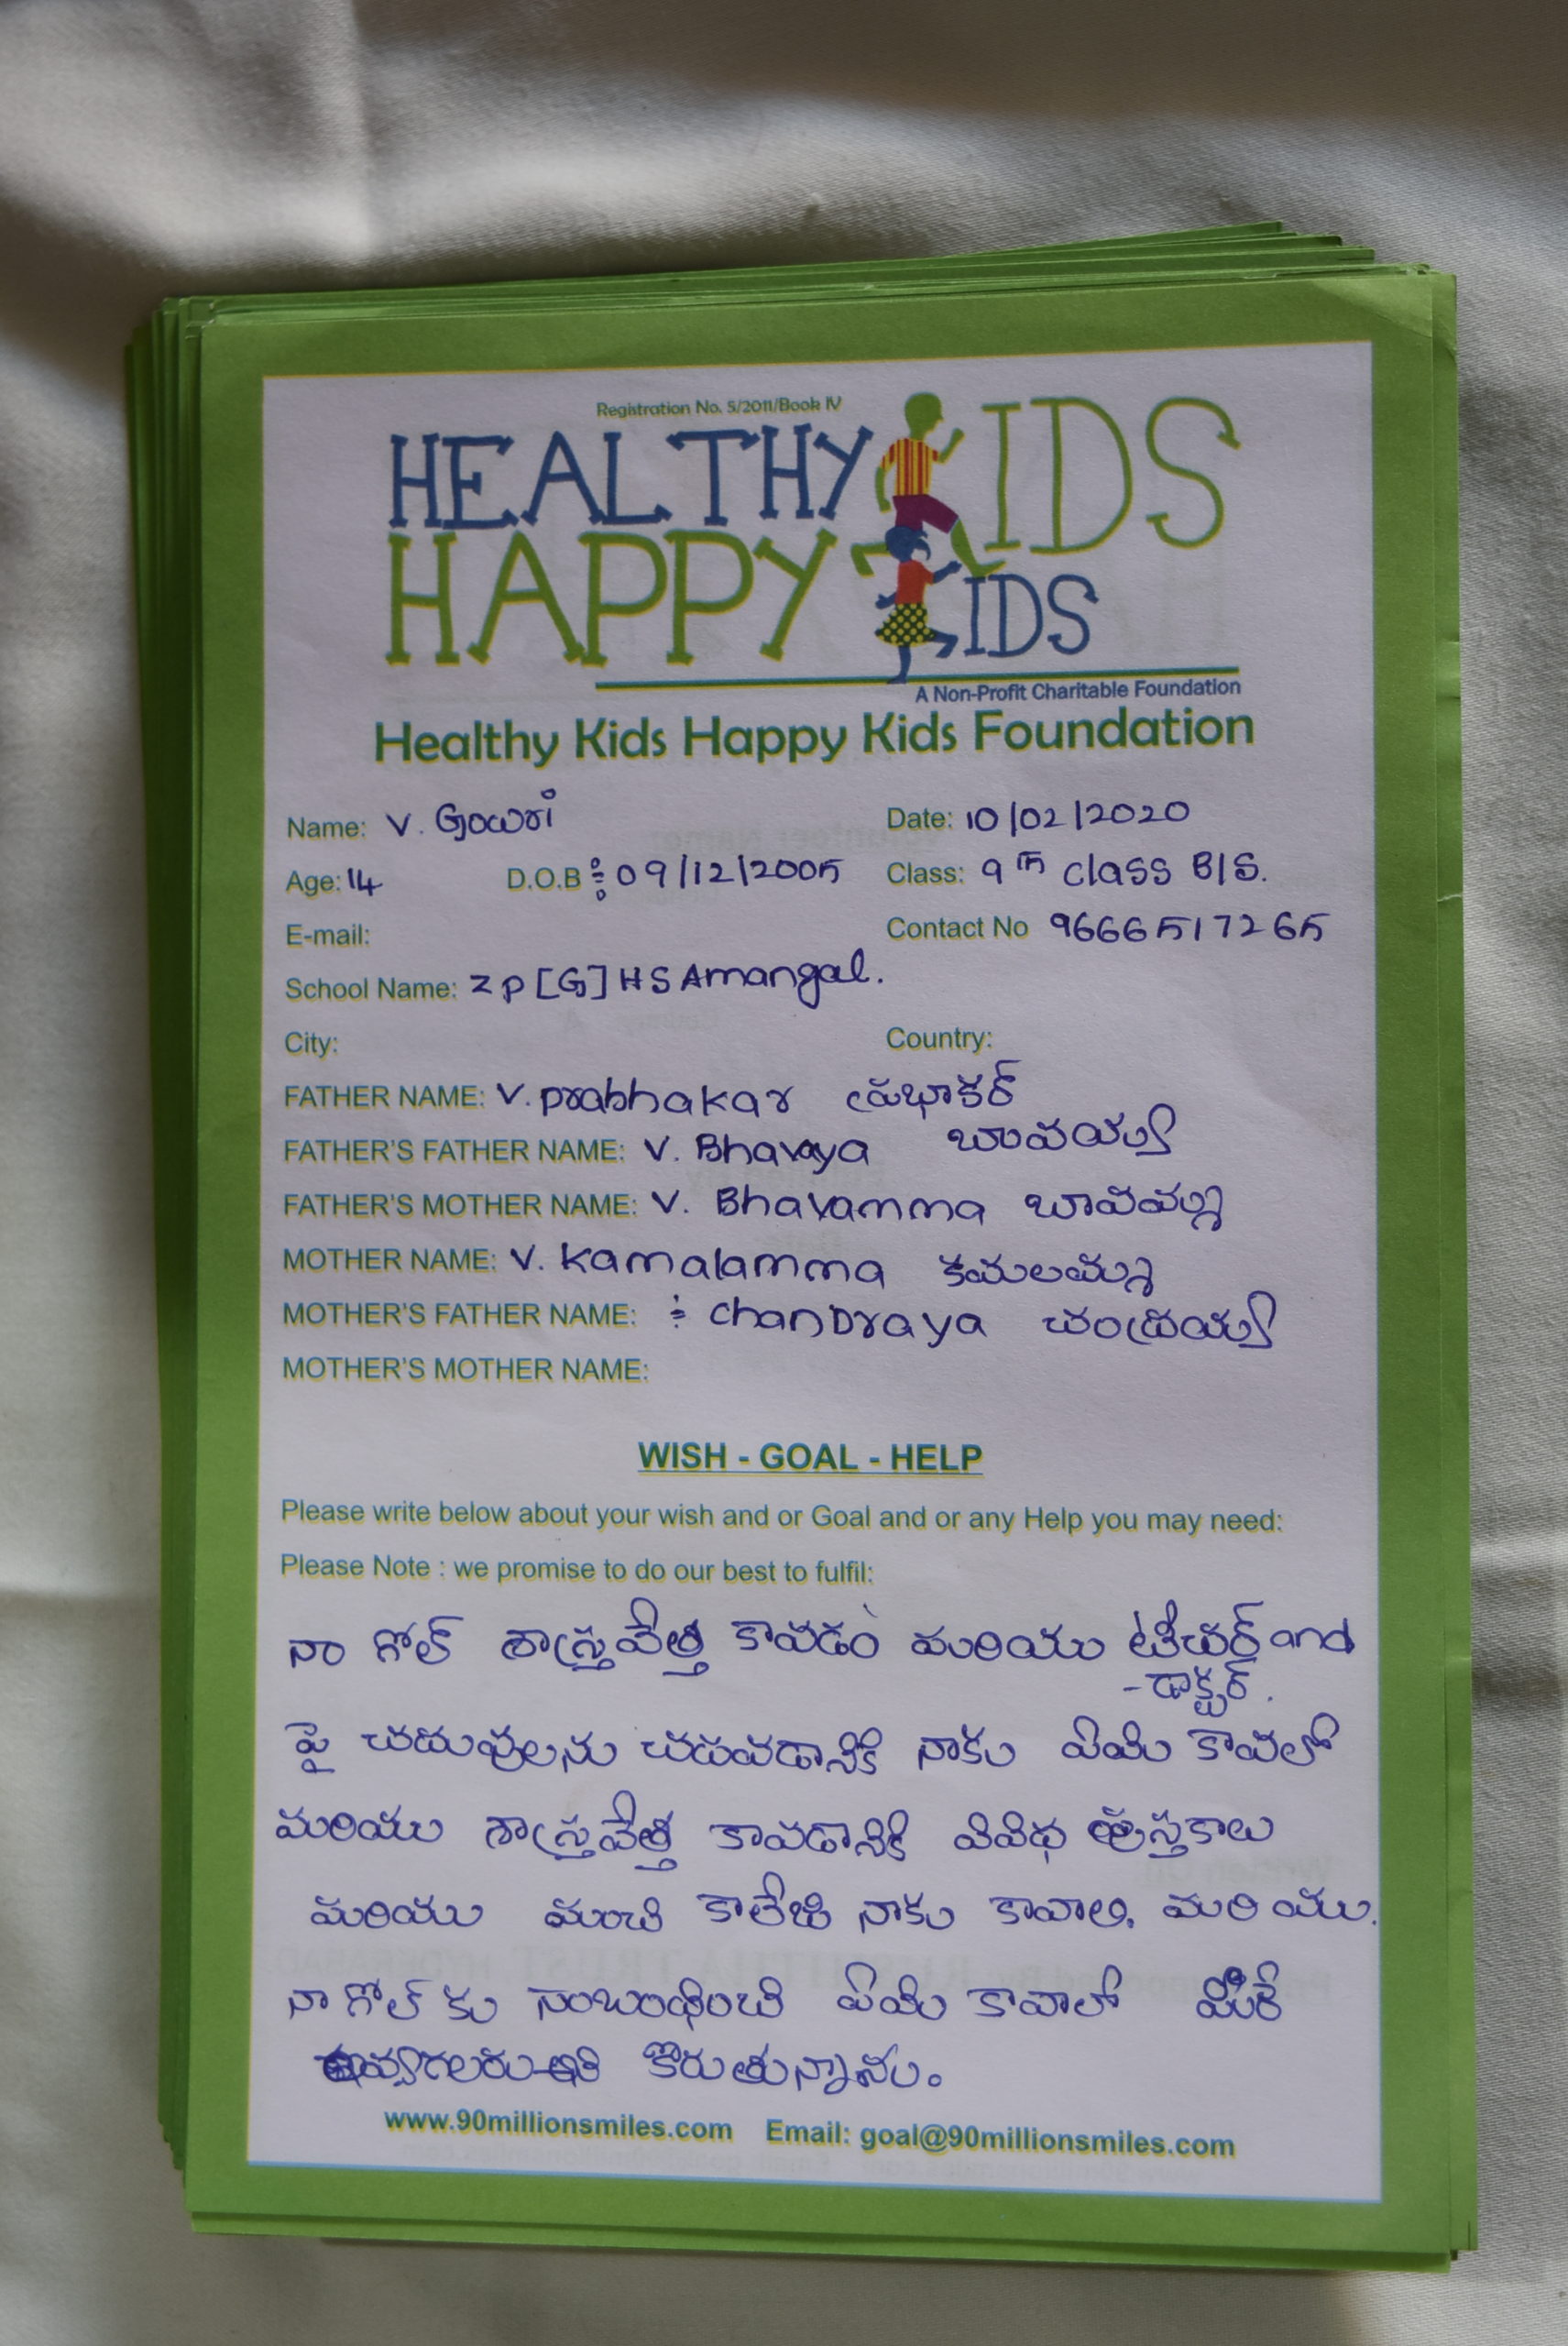 Registration No. 5/2011/Book IV
HEALTHY KIDS
HAPPY KIDS
A Non-Profit Charitable Foundation
Healthy Kids Happy Kids Foundation
Name: V. Gowri Date: 10/02/2020
Age: 14 D.O.B : 09/12/2005 Class: 9th class B/S.
E-mail: Contact No 9666517265
School Name: ZP [G] HS Amangal.
City: Country:
FATHER NAME: V. prabhakar ప్రభాకర్
FATHER'S FATHER NAME: V. Bhavaya బావయ్య
FATHER'S MOTHER NAME: V. Bhavamma బావమ్మ
MOTHER NAME: V. Kamalamma కమలమ్మ
MOTHER'S FATHER NAME: : chanDraya చంద్రయ్య
MOTHER'S MOTHER NAME:
WISH - GOAL - HELP
Please write below about your wish and or Goal and or any Help you may need:
Please Note : we promise to do our best to fulfil:
నా గోల్ శాస్త్రవేత్త కావడం మరియు టీచర్ and
-డాక్టర్.
పై చదువులను చదవడానికి నాకు ఏమి కావలో
మరియు శాస్త్రవేత్త కావడానికి వివిధ పుస్తకాలు
మరియు మంచి కాలేజి నాకు కావాలి, మరియు.
నా గోల్ కు సంబంధించి ఏమి కావాలో మీరే
ఇవ్వగలరు అని కోరుతున్నాను.
www.90millionsmiles.com Email: goal@90millionsmiles.com